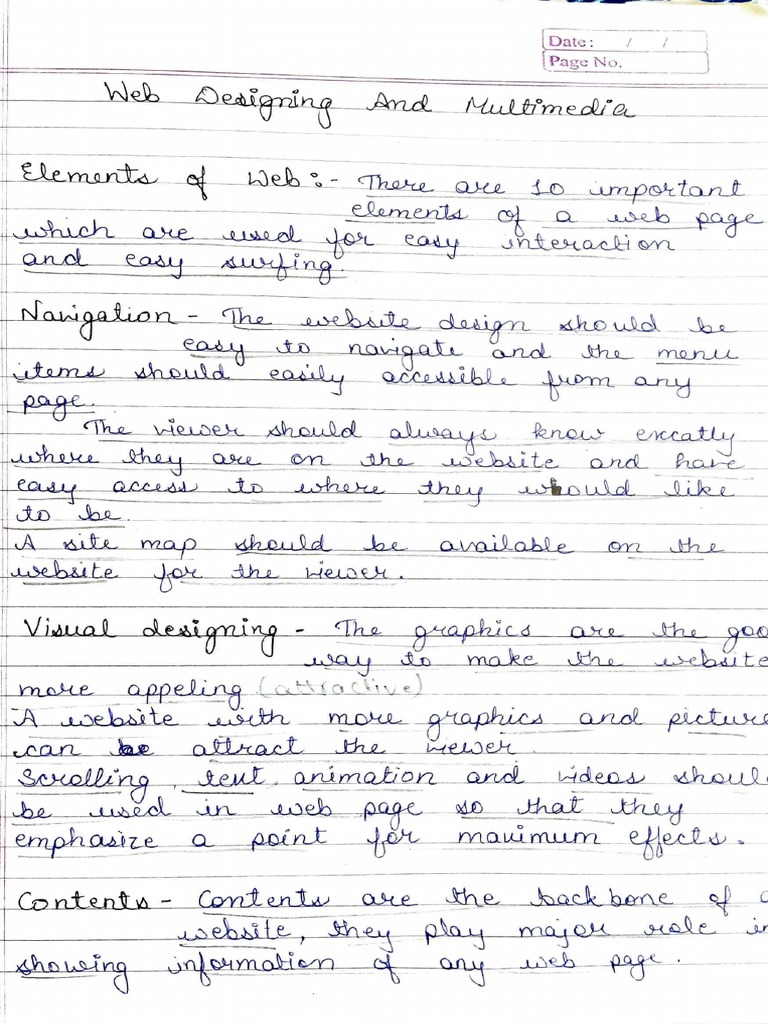 Date: / /
Page No.
Web Designing And Multimedia
Elements of Web:- There are 10 important
elements of a web page
which are used for easy interaction
and easy surfing.
Navigation - The website design should be
easy to navigate and the menu
items should easily accessible from any
page.
The viewer should always know excatly
where they are on the website and have
easy access to where they would like
to be.
A site map should be available on the
website for the viewer.
Visual designing - The graphics are the goo
way to make the website
more appeling (attractive)
A website with more graphics and picture
can attract the viewer.
Scrolling, text, animation and videos shoul
be used in web page so that they
emphasize a point for maximum effects.
Contents - Contents are the backbone of
website, they play major role in
showing information of any web page.